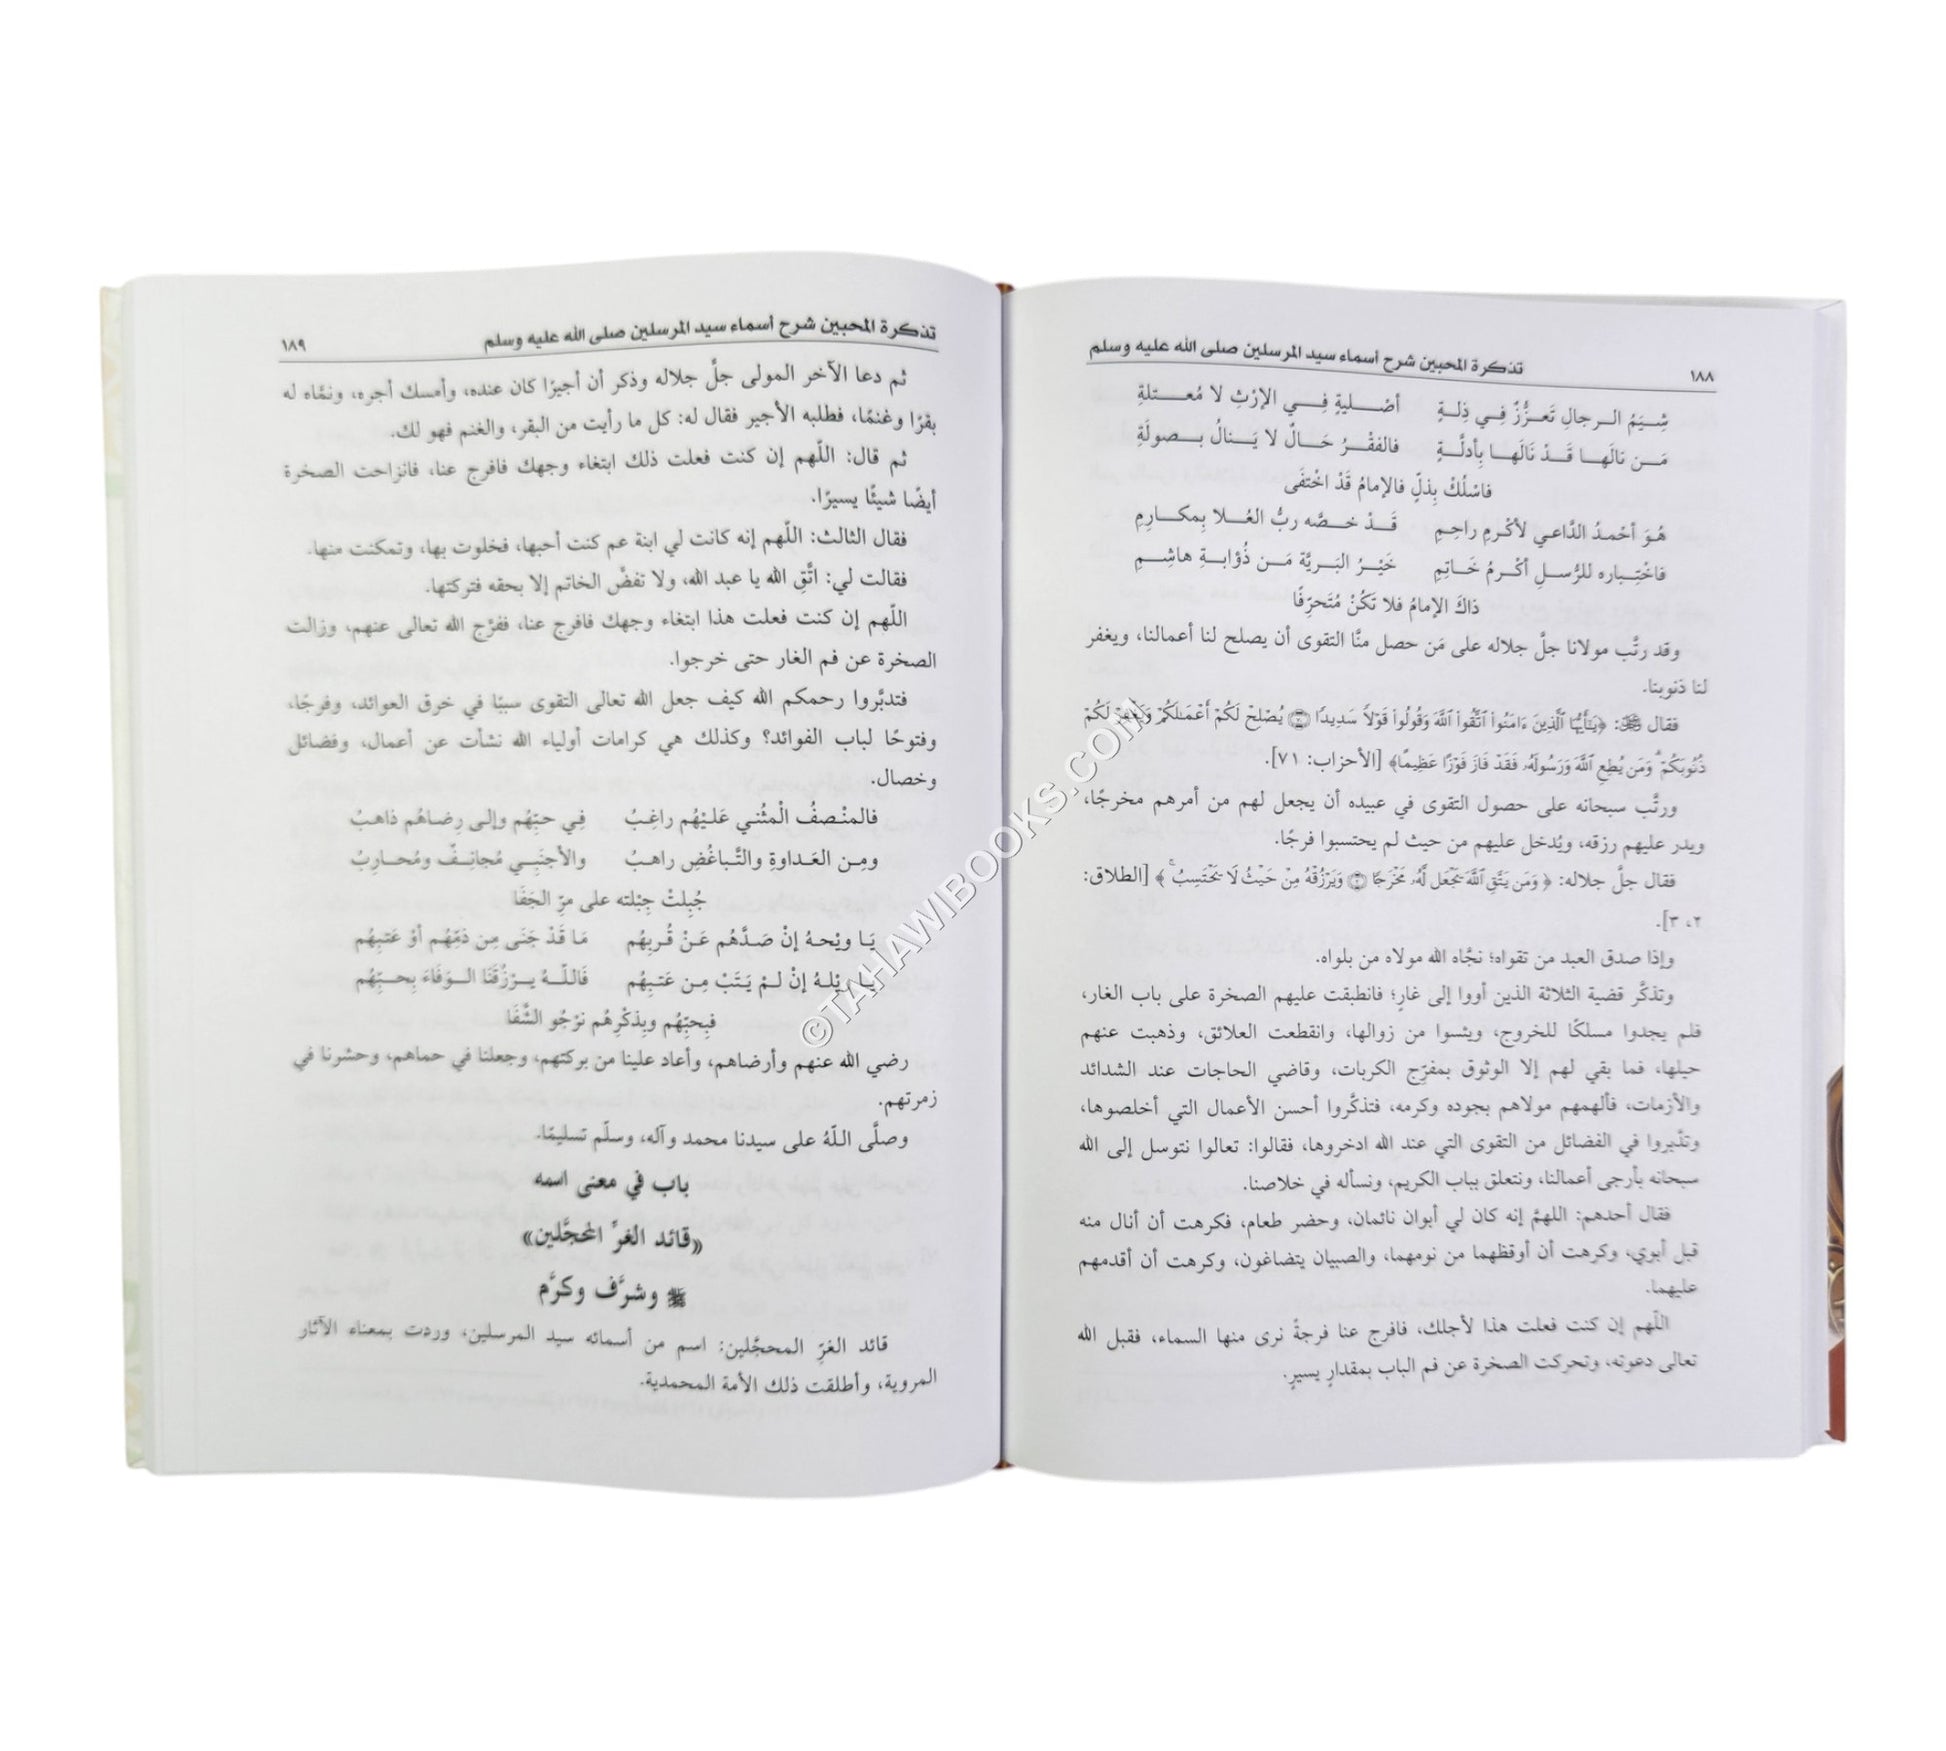 ١٨٨ تذكرة المحبين شرح أسماء سيد المرسلين صلى الله عليه وسلم
شِيَمُ الرجالِ تَعزُّزٌ فِي ذِلةِ أصْليةٍ فِي الإرْثِ لا مُعْتلةِ
مَن نالَها قَدْ نَالَها بِأدلَّةِ فالفقْرُ حَالٌ لا يَنالُ بصولَةِ
فاسْلُكْ بِذلّ فالإمامُ قَدْ اخْتَفَى
هُوَ أحْمدُ الدَّاعي لأكْرمِ راحِمِ قَدْ خصَّه ربُّ العُلا بِمكارِمِ
فاخْتِباره للرُّسلِ أكْرمُ خَاتِمِ خَيْرُ البَريَّة مَن ذُؤابةِ هاشِمِ
ذاكَ الإمامُ فلا تَكُنْ مُتَحرِّفًا
وقد رتَّب مولانا جلَّ جلاله على مَن حصل منَّا التقوى أن يصلح لنا أعمالنا، ويغفر
لنا ذنوبنا.
فقال ﷻ: ﴿يَٰٓأَيُّهَا ٱلَّذِينَ ءَامَنُوا۟ ٱتَّقُوا۟ ٱللَّهَ وَقُولُوا۟ قَوْلًا سَدِيدًا ۝٧٠ يُصْلِحْ لَكُمْ أَعْمَٰلَكُمْ وَيَغْفِرْ لَكُمْ
ذُنُوبَكُمْ ۗ وَمَن يُطِعِ ٱللَّهَ وَرَسُولَهُۥ فَقَدْ فَازَ فَوْزًا عَظِيمًا﴾ [الأحزاب: ٧١].
ورتَّب سبحانه على حصول التقوى في عبيده أن يجعل لهم من أمرهم مخرجًا،
ويدر عليهم رزقه، ويُدخل عليهم من حيث لم يحتسبوا فرجًا.
فقال جلَّ جلاله: ﴿ وَمَن يَتَّقِ ٱللَّهَ يَجْعَل لَّهُۥ مَخْرَجًا ۝٢ وَيَرْزُقْهُ مِنْ حَيْثُ لَا يَحْتَسِبُ ۚ ﴾ [الطلاق:
٢، ٣].
وإذا صدق العبد من تقواه؛ نجَّاه الله مولاه من بلواه.
وتذكَّر قضية الثلاثة الذين أووا إلى غارٍ؛ فانطبقت عليهم الصخرة على باب الغار،
فلم يجدوا مسلكًا للخروج، ويئسوا من زوالها، وانقطعت العلائق، وذهبت عنهم
حيلها، فما بقي لهم إلا الوثوق بمفرِّج الكربات، وقاضي الحاجات عند الشدائد
والأزمات، فألهمهم مولاهم بجوده وكرمه، فتذكَّروا أحسن الأعمال التي أخلصوها،
وتدَّبروا في الفضائل من التقوى التي عند الله ادخروها، فقالوا: تعالوا نتوسل إلى الله
سبحانه بأرجى أعمالنا، ونتعلق بباب الكريم، ونسأله في خلاصنا.
فقال أحدهم: اللهمَّ إنه كان لي أبوان نائمان، وحضر طعام، فكرهت أن أنال منه
قبل أبوي، وكرهت أن أوقظهما من نومهما، والصبيان يتضاغون، وكرهت أن أقدمهم
عليهما.
اللّهم إن كنت فعلت هذا لأجلك، فافرج عنا فرجةً نرى منها السماء، فقبل الله
تعالى دعوته، وتحركت الصخرة عن فم الباب بمقدارٍ يسيرٍ.
تذكرة المحبين شرح أسماء سيد المرسلين صلى الله عليه وسلم ١٨٩
ثم دعا الآخر المولى جلَّ جلاله وذكر أن أجيرًا كان عنده، وأمسك أجره، ونمَّاه له
بقرًا وغنمًا، فطلبه الأجير فقال له: كل ما رأيت من البقر، والغنم فهو لك.
ثم قال: اللّهم إن كنت فعلت ذلك ابتغاء وجهك فافرج عنا، فانزاحت الصخرة
أيضًا شيئًا يسيرًا.
فقال الثالث: اللّهم إنه كانت لي ابنة عم كنت أحبها، فخلوت بها، وتمكنت منها.
فقالت لي: اتَّقِ الله يا عبد الله، ولا تفضَّ الخاتم إلا بحقه فتركتها.
اللّهم إن كنت فعلت هذا ابتغاء وجهك فافرج عنا، ففرَّج الله تعالى عنهم، وزالت
الصخرة عن فم الغار حتى خرجوا.
فتدبَّروا رحمكم الله كيف جعل الله تعالى التقوى سببًا في خرق العوائد، وفرجًا،
وفتوحًا لباب الفوائد؟ وكذلك هي كرامات أولياء الله نشأت عن أعمال، وفضائل
وخصال.
فالمنْصفُ الْمثْني عَليْهُم راغِبُ فِي حبّهُم وإلى رِضاهُم ذاهبُ
ومِن العَداوةِ والتَّباغُضِ راهبُ والأجنَبِي مُجانِفٌ ومُحارِبُ
جُبِلتْ جِبْلته على مرِّ الجَفَا
يَا ويْحهُ إنْ صَدَّهُم عَنْ قُربِهُم مَا قَدْ جَنَى مِن ذمِّهُم أوْ عَتبِهُم
يا ويْلهُ إنْ لَمْ يَتَبْ مِن عَتبِهُم فَاللهُ يرْزُقنَا الوَفَاءَ بِحبّهُم
فبِحبّهُم وبِذكْرِهُم نرْجُو الشَّفَا
رضي الله عنهم وأرضاهم، وأعاد علينا من بركتهم، وجعلنا في حماهم، وحشرنا في
زمرتهم.
وصلَّى اللهُ على سيدنا محمد وآله، وسلّم تسليمًا.
باب في معنى اسمه
«قائد الغرِّ المحجَّلين»
ﷺ وشرَّف وكرَّم
قائد الغرِّ المحجَّلين: اسم من أسمائه سيد المرسلين، وردت بمعناه الآثار
المروية، وأطلقت ذلك الأمة المحمدية.
©TAHAWIBOOKS.COM